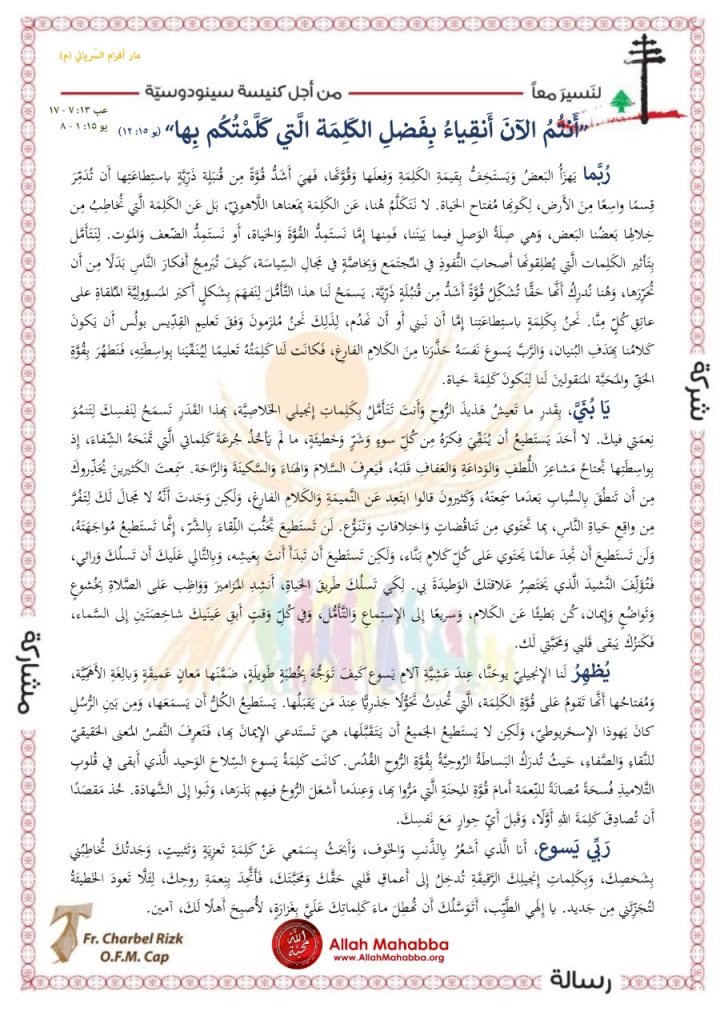 مار أفرام السّرياني (م)
لنَسيرَ معاً
من أجل كنيسة سينودوسيّة
عب ١٣: ٧ - ١٧
يو ١٥: ١ - ٨
"أَنتُمُ الآنَ أَنقِياءُ بِفَضلِ الكَلِمَة الَّتي كَلَّمْتُكُم بِها" (يو ١٥: ١٢)
رُبَّما يَهزَأُ البَعضُ وَيَستَخِفُّ بِقيمَةِ الكَلِمَةِ وَفِعلِها وَقُوَّتِها، فَهِيَ أَشَدُّ قُوَّةً مِن قُنبُلَةٍ ذَرِّيَّةٍ باستِطاعَتِها أن تُدَمِّرَ
قِسمًا واسِعًا مِنَ الأَرض، لِكَونِها مُفتاح الحَياة. لا نَتَكَلَّمُ هُنا، عَن الكَلِمَة بِمَعناها اللّاهوتيّ، بَل عَن الكَلِمَة الَّتي نُخاطِبُ مِن
خِلالِها بَعضُنا البَعض، وَهي صِلَةُ الوَصلِ فيما بَينَنا، فَمِنها إمَّا نَستَمِدُّ القُوَّةَ وَالحَياة، أو نَستَمِدُّ الضّعفَ وَالمَوت. لِنَتَأَمَّل
بِتَأثيرِ الكَلِماتِ الَّتي يُطلِقونَها أَصحابَ النُّفوذِ في المُجتَمَع وَبِخاصَّةٍ في مَجالِ السِّياسَة، كَيفَ تُبَرمِجُ أَفكارَ النّاسِ بَدَلًا مِن أن
تُحَرِّرَها، وَهُنا نُدرِكُ أَنَّها حَقًّا تُشَكِّلُ قُوَّةً أَشَدُّ مِن قُنبُلَةٍ ذَرِّيَّة. يَسمَحُ لَنا هذا التَّأَمُّلَ لِنَفهَمَ بِشَكلٍ أَكبَر المَسؤوليَّةَ المُلقاةِ على
عاتِقِ كُلٍّ مِنَّا. نَحنُ بِكَلِمَةٍ باستِطاعَتِنا إمَّا أن نَبني أو أن نَهدُم، لِذلِكَ نَحنُ مُلزَمونَ وَفقَ تَعليمِ القِدّيس بولُس أن يَكونَ
كَلامُنا بِهَدَفِ البُنيان، وَالرَّبُّ يَسوعَ نَفسَهُ حَذَّرَنا مِنَ الكَلامِ الفارِغ، فَكانَت لَنا كَلِمَتُهُ تَعليمًا لِيُنَقّيَنا بِواسِطَتِهِ، فَنَطهُرَ بِقُوَّةِ
الحَقِّ وَالمَحَبَّة المَنقولَينِ لَنا لِنَكونَ كَلِمَةَ حَياة.
يا بُنَيَّ، بِقَدرِ ما تَعيشُ هَذيذَ الرّوحِ وَأَنتَ تَتَأَمَّلُ بِكَلِماتِ إنجيلي الخَلاصِيَّة، بِهذا القَدَرِ تَسمَحُ لِنَفسِكَ لِتَنمُوَ
نِعمَتي فيكَ. لا أَحَدَ يَستَطيعُ أن يُنَقّيَ فِكرَهُ مِن كُلِّ سوءٍ وَشَرٍّ وَخَطيئَةٍ، ما لَم يَأخُذُ جُرعَةَ كَلِماتي الَّتي تَمنَحَهُ الشِّفاءَ، إذ
بِواسِطَتِها تَجتاحُ مَشاعِرَ اللُّطفِ وَالوَداعَةِ وَالعَفافِ قَلبَهُ، فَيَعرِفَ السَّلامَ وَالهَناءَ وَالسَّكينَةَ وَالرَّاحَة. سَمِعتَ الكَثيرينَ يُحَذِّروكَ
مِن أن تَنطُقَ بِالسُّبابِ بَعدَما سَمِعتَهُ، وَكَثيرونَ قالوا ابتَعِد عَن النَّميمَةِ وَالكَلامِ الفارِغ، وَلكِن وَجَدتَ أَنَّهُ لا مَجالَ لَكَ لِتَفُرَّ
مِن واقِعِ حَياةِ النَّاسِ، بِما تَحتَوي مِن تَناقُضاتٍ وَاختِلافاتٍ وَتَنَوُّع. لَن تَستَطيعَ تَجَنُّبَ اللِّقاءَ بِالشَّرّ، إنَّما تَستَطيعُ مُواجَهَتَهُ،
وَلَن تَستَطيعَ أن تَجِدَ عالَمًا يَحتَوي عَلى كُلِّ كَلامٍ بَنَّاء، وَلكِن تَستَطيعَ أن تَبدَأَ أَنتَ بِعَيشِهِ، وَبِالتّالي عَلَيكَ أن تَسلُكَ وَرائي،
فَتُؤَلِّفَ النَّشيدَ الَّذي يَختَصِرُ عَلاقَتَكَ الوَطيدَةَ بي. لِكَي تَسلُكَ طَريقَ الحَياةِ، أَنشِدِ المَزاميرَ وَوَاظِب على الصَّلاةِ بِخُشوعٍ
وَتَواضُعٍ وَإيمان، كُن بَطيئًا عَن الكَلام، وَسَريعًا إلى الإستِماعِ وَالتَّأَمُّل، وَفي كُلِّ وَقتٍ أَبقِ عَينَيكَ شاخِصَتَينِ إلى السَّماء،
فَكَنزُكَ يَبقى قَلبي وَمَحَبَّتي لَك.
يُظهِرُ لَنا الإنجيليّ يوحَنّا، عِندَ عَشِيَّةِ آلامِ يَسوع كَيفَ تَوَجَّهُ بِخُطبَةٍ طَويلَةٍ، ضَمَّنَها مَعانٍ عَميقَةٍ وَبالِغَةِ الأَهَمِّيَّة،
وَمُفتاحُها أَنَّها تَقومُ عَلى قُوَّةِ الكَلِمَة، الَّتي تُحدِثُ تَحَوُّلًا جَذرِيًّا عِندَ مَن يَقبَلُها. يَستَطيعُ الكُلُّ أن يَسمَعَها، وَمِن بَينِ الرُّسُلِ
كانَ يَهوذا الإسخَريوطيّ، وَلكِن لا يَستَطيعُ الجَميعُ أن يَتَقَبَّلَها، هِيَ تَستَدعي الإيمانَ بِها، فَتَعرِفَ النَّفسُ المَعنى الحَقيقيّ
لِلنَّقاءِ وَالصَّفاء، حَيثُ تُدرَكُ البَساطَةُ الرّوحِيَّةُ بِقُوَّةِ الرّوحِ القُدُس. كانَت كَلِمَةُ يَسوع السِّلاحَ الوَحيد الَّذي أَبقى في قُلوبِ
التَّلاميذِ فُسحَةً مُصانَةً لِلنِّعمَة أَمامَ قُوَّةِ المِحنَةِ الَّتي مَرُّوا بِها، وَعِندَما أَشعَلَ الرّوحُ فيهِم بَذرَها، وَثَبوا إلى الشَّهادَة. خُذ مَقصَدًا
أن تُصادِقَ كَلِمَةَ اللهِ أَوَّلًا، وَقَبلَ أَيِّ حِوارٍ مَعَ نَفسِكَ.
رَبّي يَسوع، أَنا الَّذي أَشعُرُ بِالذَّنبِ وَالخَوف، وَأَبحَثُ بِسَمَعي عَنْ كَلِمَةِ تَعزِيَةٍ وَتَثبيتٍ، وَجَدتُكَ تُخاطِبُني
بِشَخصِكَ، وَبِكَلِماتِ إنجيلِكَ الرَّقيقَةِ تُدخِلُ إلى أَعماقِ قَلبي حَقَّكَ وَمَحَبَّتَكَ، فَأَتَّحِدَ بِنِعمَةِ روحِكَ، لِئَلَّا تَعودَ الخَطيئَةُ
لِتُجَزِّئَني مِن جَديد. يا إلَهي الطَّيِّب، أَتَوَسَّلُكَ أن تُهطِلَ ماءَ كَلِماتِكَ عَلَيَّ بِغَزارَةٍ، لِأُصبِحَ أَهلًا لَكَ، آمين.
شركة
مشاركة
رسالة
Fr. Charbel Rizk
O.F.M. Cap
الله محبة
Allah Mahabba
www.AllahMahabba.org